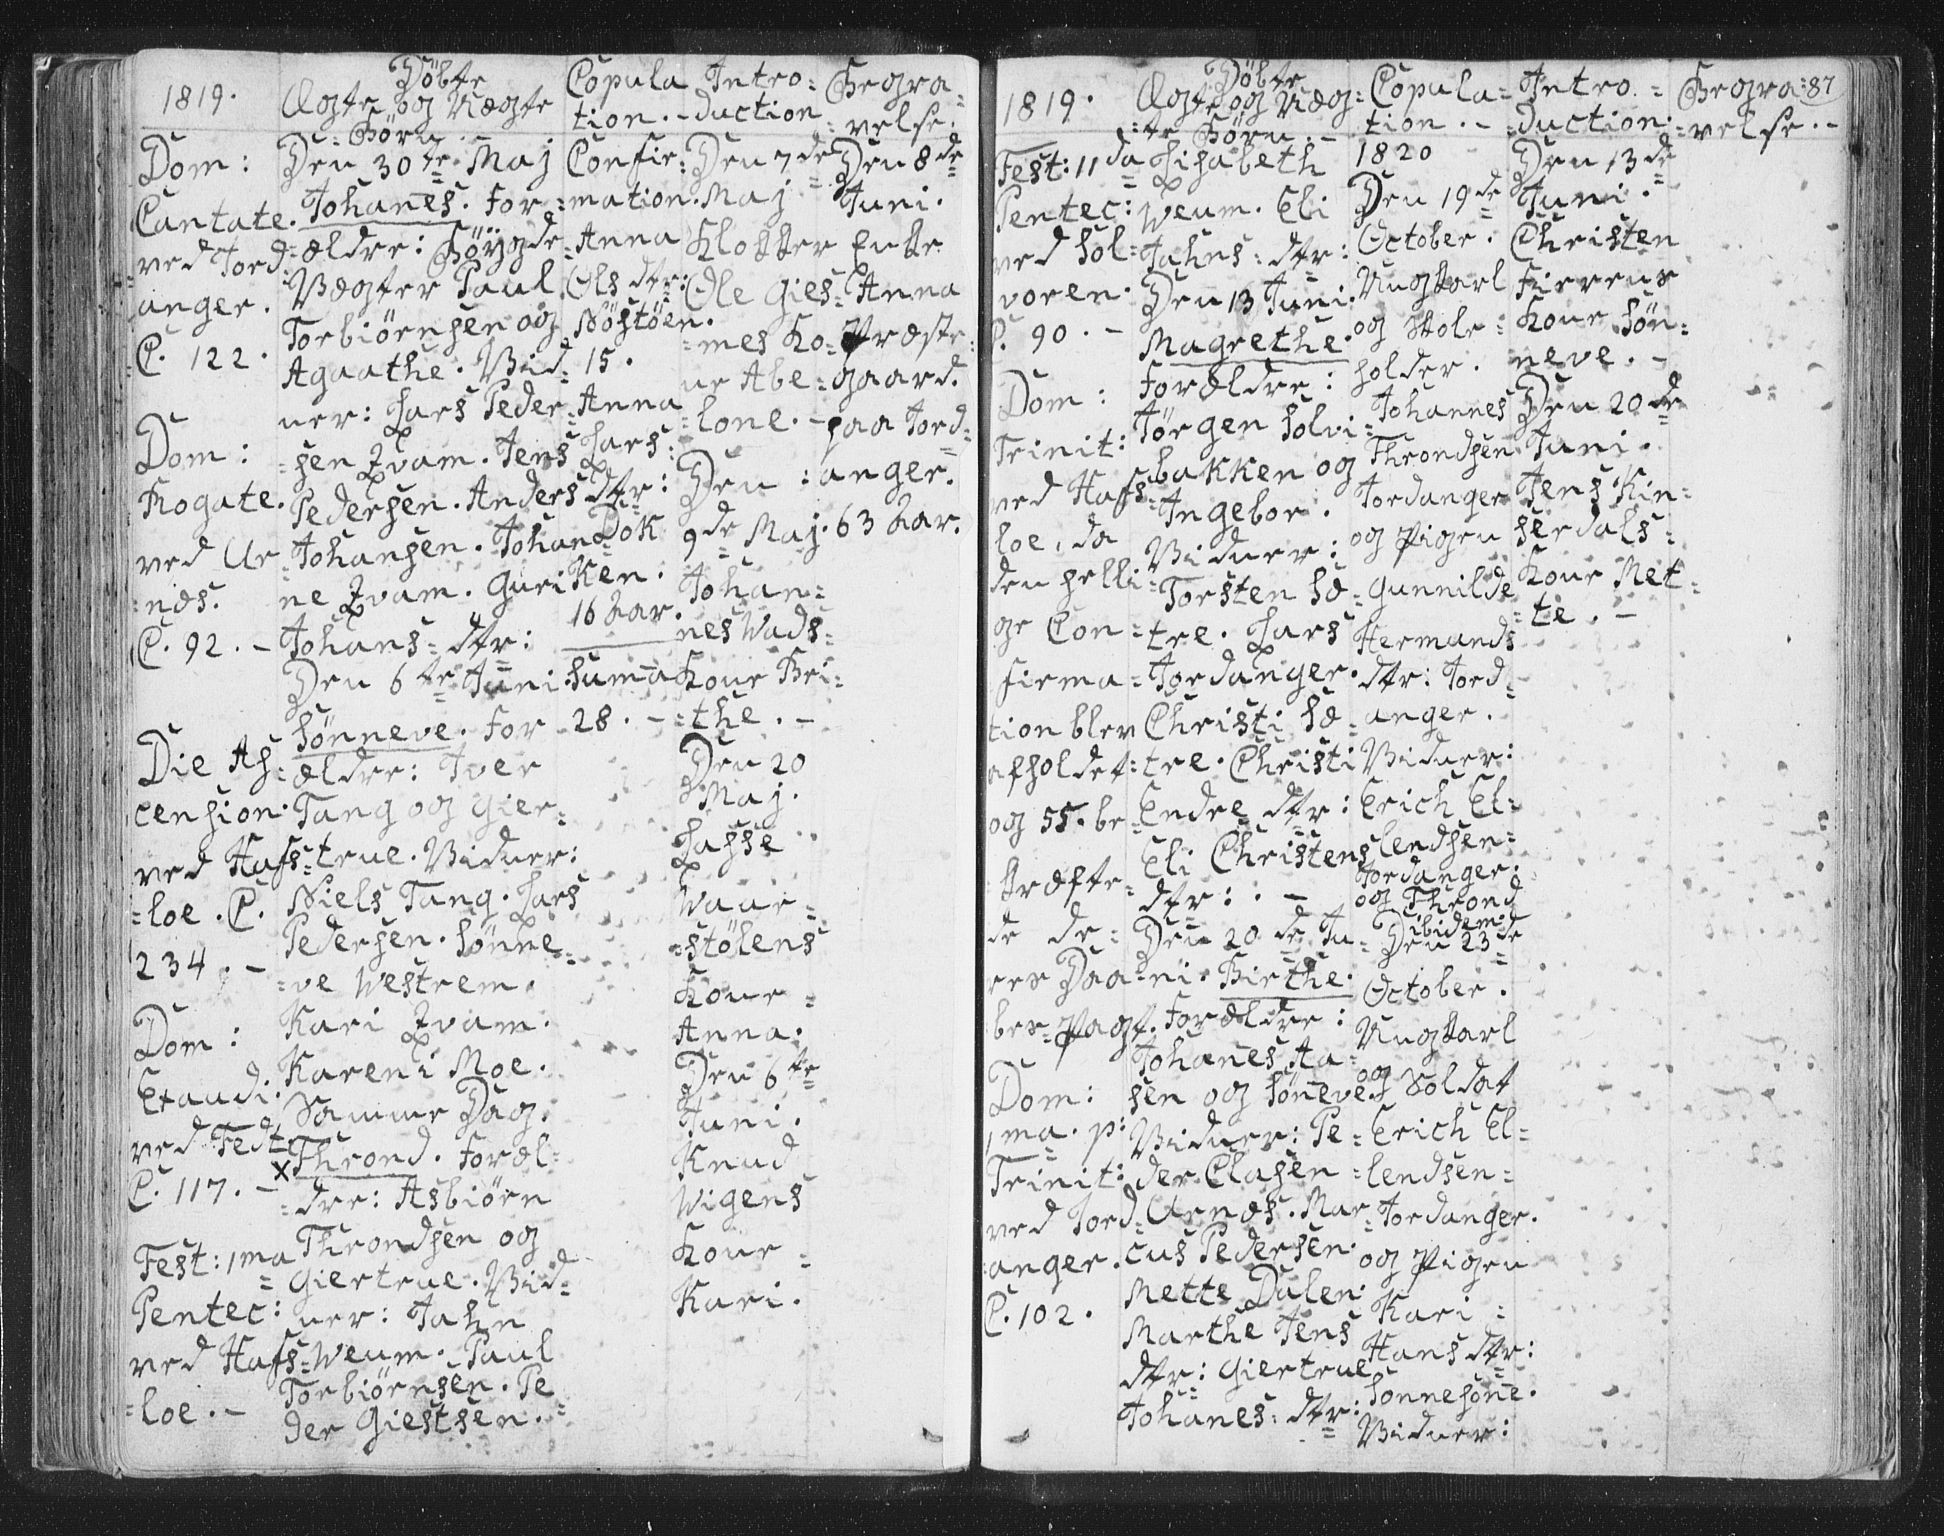 1819.
Dom:
Cantate.
ved Jord-
anger.
C. 122.
Dom:
Rogate.
ved Ur-
næs.
C. 92. -
Die As-
cension.
ved Hafs-
loe. C.
234. -
Dom:
Exaudi.
ved Fedt
C. 117. -
Fest: 1ma
Pentec:
ved Hafs-
loe. -
Döbte
Ægte og Uægte
Börn.
Den 30te Maj
Johanes. For-
ældre: Böygde
Vægter Paul
Torbiörnsen og
Agaathe. Vid-
ner: Lars Peder-
sen Qvam. Jens
Pedersen. Anders
Johansen. Johan-
ne Qvam. Guri
Johans- dtr:
Den 6te Juni
Sönneve. For
ældre: Iver
Tang og Gier-
true. Vidner:
Niels Tang. Lars
Pedersen. Sönne-
ve Westrem.
Kari Qvam.
Karen i Moe.
Samme Dag.
x Thrond. Foræl-
dre: Asbiörn
Throndsen og
Giertrue. Vid-
ner: Jahn
Weum. Paul
Torbiörnsen. Pe
der Giestsen.
Copula
tion. -
Confir-
mation.
Anna
Ols dtr:
Döstöen.
15.
Anna
Lars:
dtr:
Dok
Ken.
16 Aar.
Suma
28. -
Intro-
duction
Den 7de
Maj
Klokker
Ole Gies-
mes Ko-
ne Abe-
lone. -
Den
9de Maj.
Johan-
nes Wads-
Kone Bri-
the. -
Den 20
Maj.
Lasse
Waar-
stölens
Kone-
Anna.
Den 6te
Juni.
Knud
Wigens
Kone-
Kari.
Begra-
velse.
Den 8de
Juni.
Enke
Anna
Præste-
gaard.
paa Jord-
anger.
63 Aar.
1819.
Fest: 11da
Pentec:
ved Sol-
voren.
C. 90. -
Dom:
Trinit:
ved Hafs-
loe, da
den helli-
ge Con-
firma-
tion blev
afholdet:
og 55. be-
kræfte-
de de-
res Daa-
bes-Pagt.
Dom:
1ma. p:
Trinit:
ved Jord-
anger.
C. 102.
Döbte
Ægte og Uæg-
te Börn. -
Lisabeth
Weum. Eli
Jahns- dtr:
Den 13 Juni.
Magrethe.
Forældre:
Jörgen Solvi-
bakken og
Ingebor.
Vidner:
Torsten Sæ-
tre. Lars
Jordanger.
Christi Sæ-
tre. Christi
Endre dtr:
Eli Christens
dtr: . -
Den 20de Ju-
ni. Birthe.
Forældre:
Johanes Aa-
sen og Söneve.
Vidner: Pe-
der Clasen
Urnæs. Mar-
cus Pedersen.
Mette Dalen.
Marthe Jens
dtr: Giertrue
Johanes- dtr:
Copula-
tion. -
1820
Den 19de
October.
Ungkarl
og Skole-
holder.
Johannes
Throndsen
Jordanger
og Pigen
Gunnilde
Hermunds
dtr: Jord-
anger.
Vidner:
Erich El-
lendsen-
Jordanger.
og Thrond
ibidem.
Den 23de
October.
Ungkarl
og Soldat
Erich El-
lendsen-
Jordanger.
og Pigen
Kari-
Hans dtr:
Sonnesöne.
Vidner:
Intro-
duction.
Den 13de
Juni.
Christen
Kone Sön-
neve. -
Den 20de
Juni.
Jens Kin-
serdals-
Kone Met-
te. -
Begra-
velse. -
87